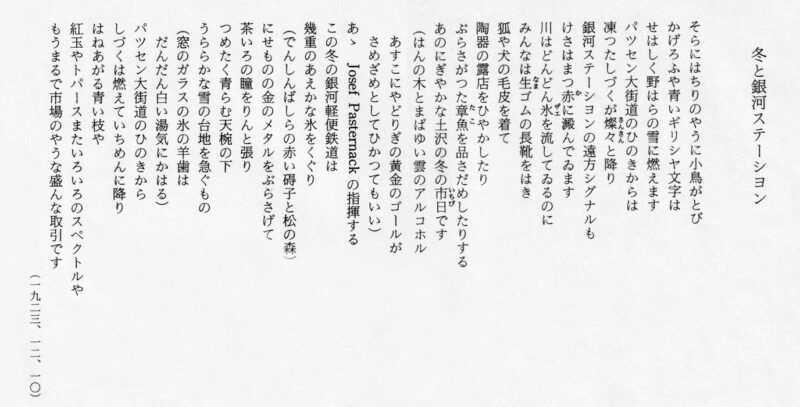 冬と銀河ステーシヨン
そらにはちりのやうに小鳥がとび
かげろふや青いギリシヤ文字は
せはしく野はらの雪に燃えます
パツセン大街道のひのきからは
凍つたしづくが燦々と降り
銀河ステーシヨンの遠方シグナルも
けさはまつ赤に澱んでゐます
川はどんどん氷を流してゐるのに
みんなは生ゴムの長靴をはき
狐や犬の毛皮を着て
陶器の露店をひやかしたり
ぶらさがつた章魚を品さだめしたりする
あのにぎやかな土沢の冬の市日です
(はんの木とまばゆい雲のアルコホル
あすこにやどりぎの黄金のゴールが
さめざめとしてひかつてもいい)
あゝ Josef Pasternack の指揮する
この冬の銀河軽便鉄道は
幾重のあえかな氷をくぐり
(でんしんばしらの赤い碍子と松の森)
にせものの金のメタルをぶらさげて
茶いろの瞳をりんと張り
つめたく青らむ天椀の下
うららかな雪の台地を急ぐもの
(窓のガラスの氷の羊歯は
だんだん白い湯気にかはる)
パツセン大街道のひのきから
しづくは燃えていちめんに降り
はねあがる青い枝や
紅玉やトパースまたいろいろのスペクトルや
もうまるで市場のやうな盛んな取引です
(一九二三、一二、一〇)